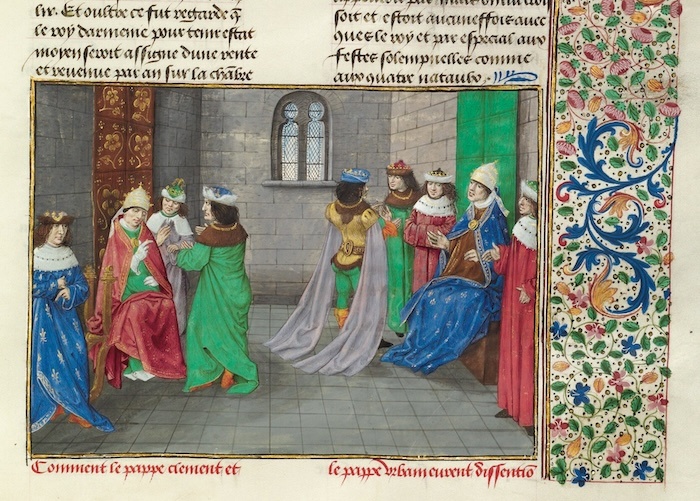 liv. Et oultre ce fut regarde q̃
le roy darmenie pour tenir estat
moyen seroit assigne dune rente
et revenue par an sur la chãbre
soit et estoit aucuneffois avec
ques le roy et par especial aux
festes solempnelles comme
aux quatre nataulx
Comment le pappe clement et
le pappe Urbain eurent dissentiõ